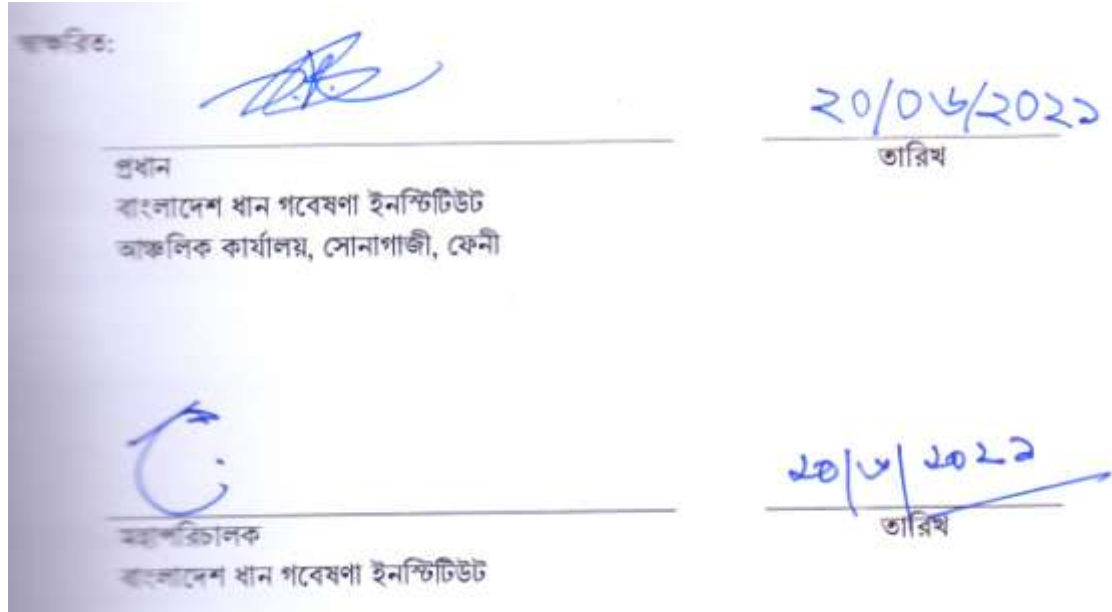 স্বাক্ষরিত:
২০/০৬/২০২১
প্রধান
তারিখ
বাংলাদেশ ধান গবেষণা ইনস্টিটিউট
আঞ্চলিক কার্যালয়, সোনাগাজী, ফেনী
২০/৬/২০২১
মহাপরিচালক
তারিখ
বাংলাদেশ ধান গবেষণা ইনস্টিটিউট